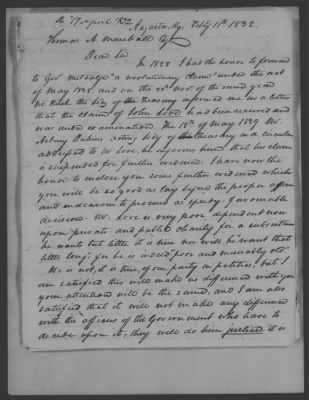 17 April 1832
Augusta, Ky. Feby 11th 1832.
Thomas A Marshall Esqr
Dear Sir
In 1828 I had the honor to forward
to Gov Metcalfe a revolutionary claim under the act
of May 1828. and on the of the same year
Mr Rush the Secy of the Treasury informed me in a letter
that the claim of John Love had been received and
was under examination. The 12th of May 1829 Mr
Asbury Dickins, acting Secy of the Treasury in a circular
addressed to Mr Love, he informs him that his claim
is suspended for further evidence. I have now the
honor to enclose you some further evidence which
you will be so good as lay before the proper officer
and endeavour to procure as speedy & favorable
decision. Mr. Love is very poor dependent now
upon private and public charity for a subsistence
he wants but little it is true nor will he want that
little long, for he is indeed poor and miserably old,
He is not, it is true, of our party in politics, but I
am satisfied this will make no difference with you
your attention will be the same, and I am also
satisfied that it will not make any difference
with the officers of the Government who have to
decide upon it, they will do him justice it is